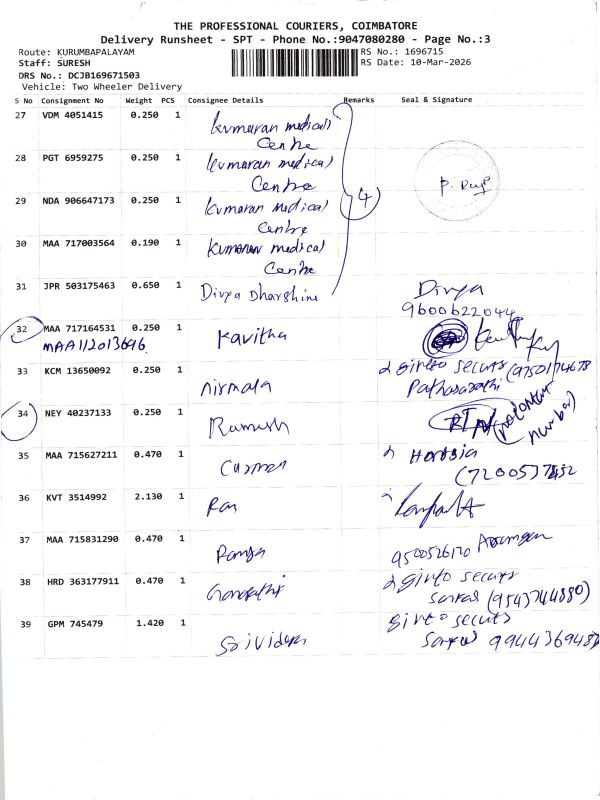 THE PROFESSIONAL COURIERS, COIMBATORE
Delivery Runsheet - SPT - Phone No.:9047080280 - Page No.:3
Route: KURUMBAPALAYAM
RS No.: 1696715
Staff: SURESH
RS Date: 10-Mar-2026
DRS No.: DCJB169671503
Vehicle: Two Wheeler Delivery
S No Consignment No Weight PCS Consignee Details Remarks Seal & Signature
27 VDM 4051415 0.250 1 Kumaran medical
Centre
28 PGT 6959275 0.250 1 Kumaran medical
Centre
29 NDA 906647173 0.250 1 Kumaran medical 4
Centre
30 MAA 717003564 0.190 1 Kumaran medical
Centre
31 JPR 503175463 0.650 1 Divya Dharshini Divya
9600622044
32 MAA 717164531 0.250 1 Kavitha
MAA112013696
33 KCM 13650092 0.250 1 Nirmala
Parthasarathi
34 NEY 40237133 0.250 1 Ramesh (no contact number)
35 MAA 715627211 0.470 1
36 KVT 3514992 2.130 1
37 MAA 715831290 0.470 1 Ramya
38 HRD 363177911 0.470 1 Ganapathi
(9543744880)
39 GPM 745479 1.420 1 Srividya